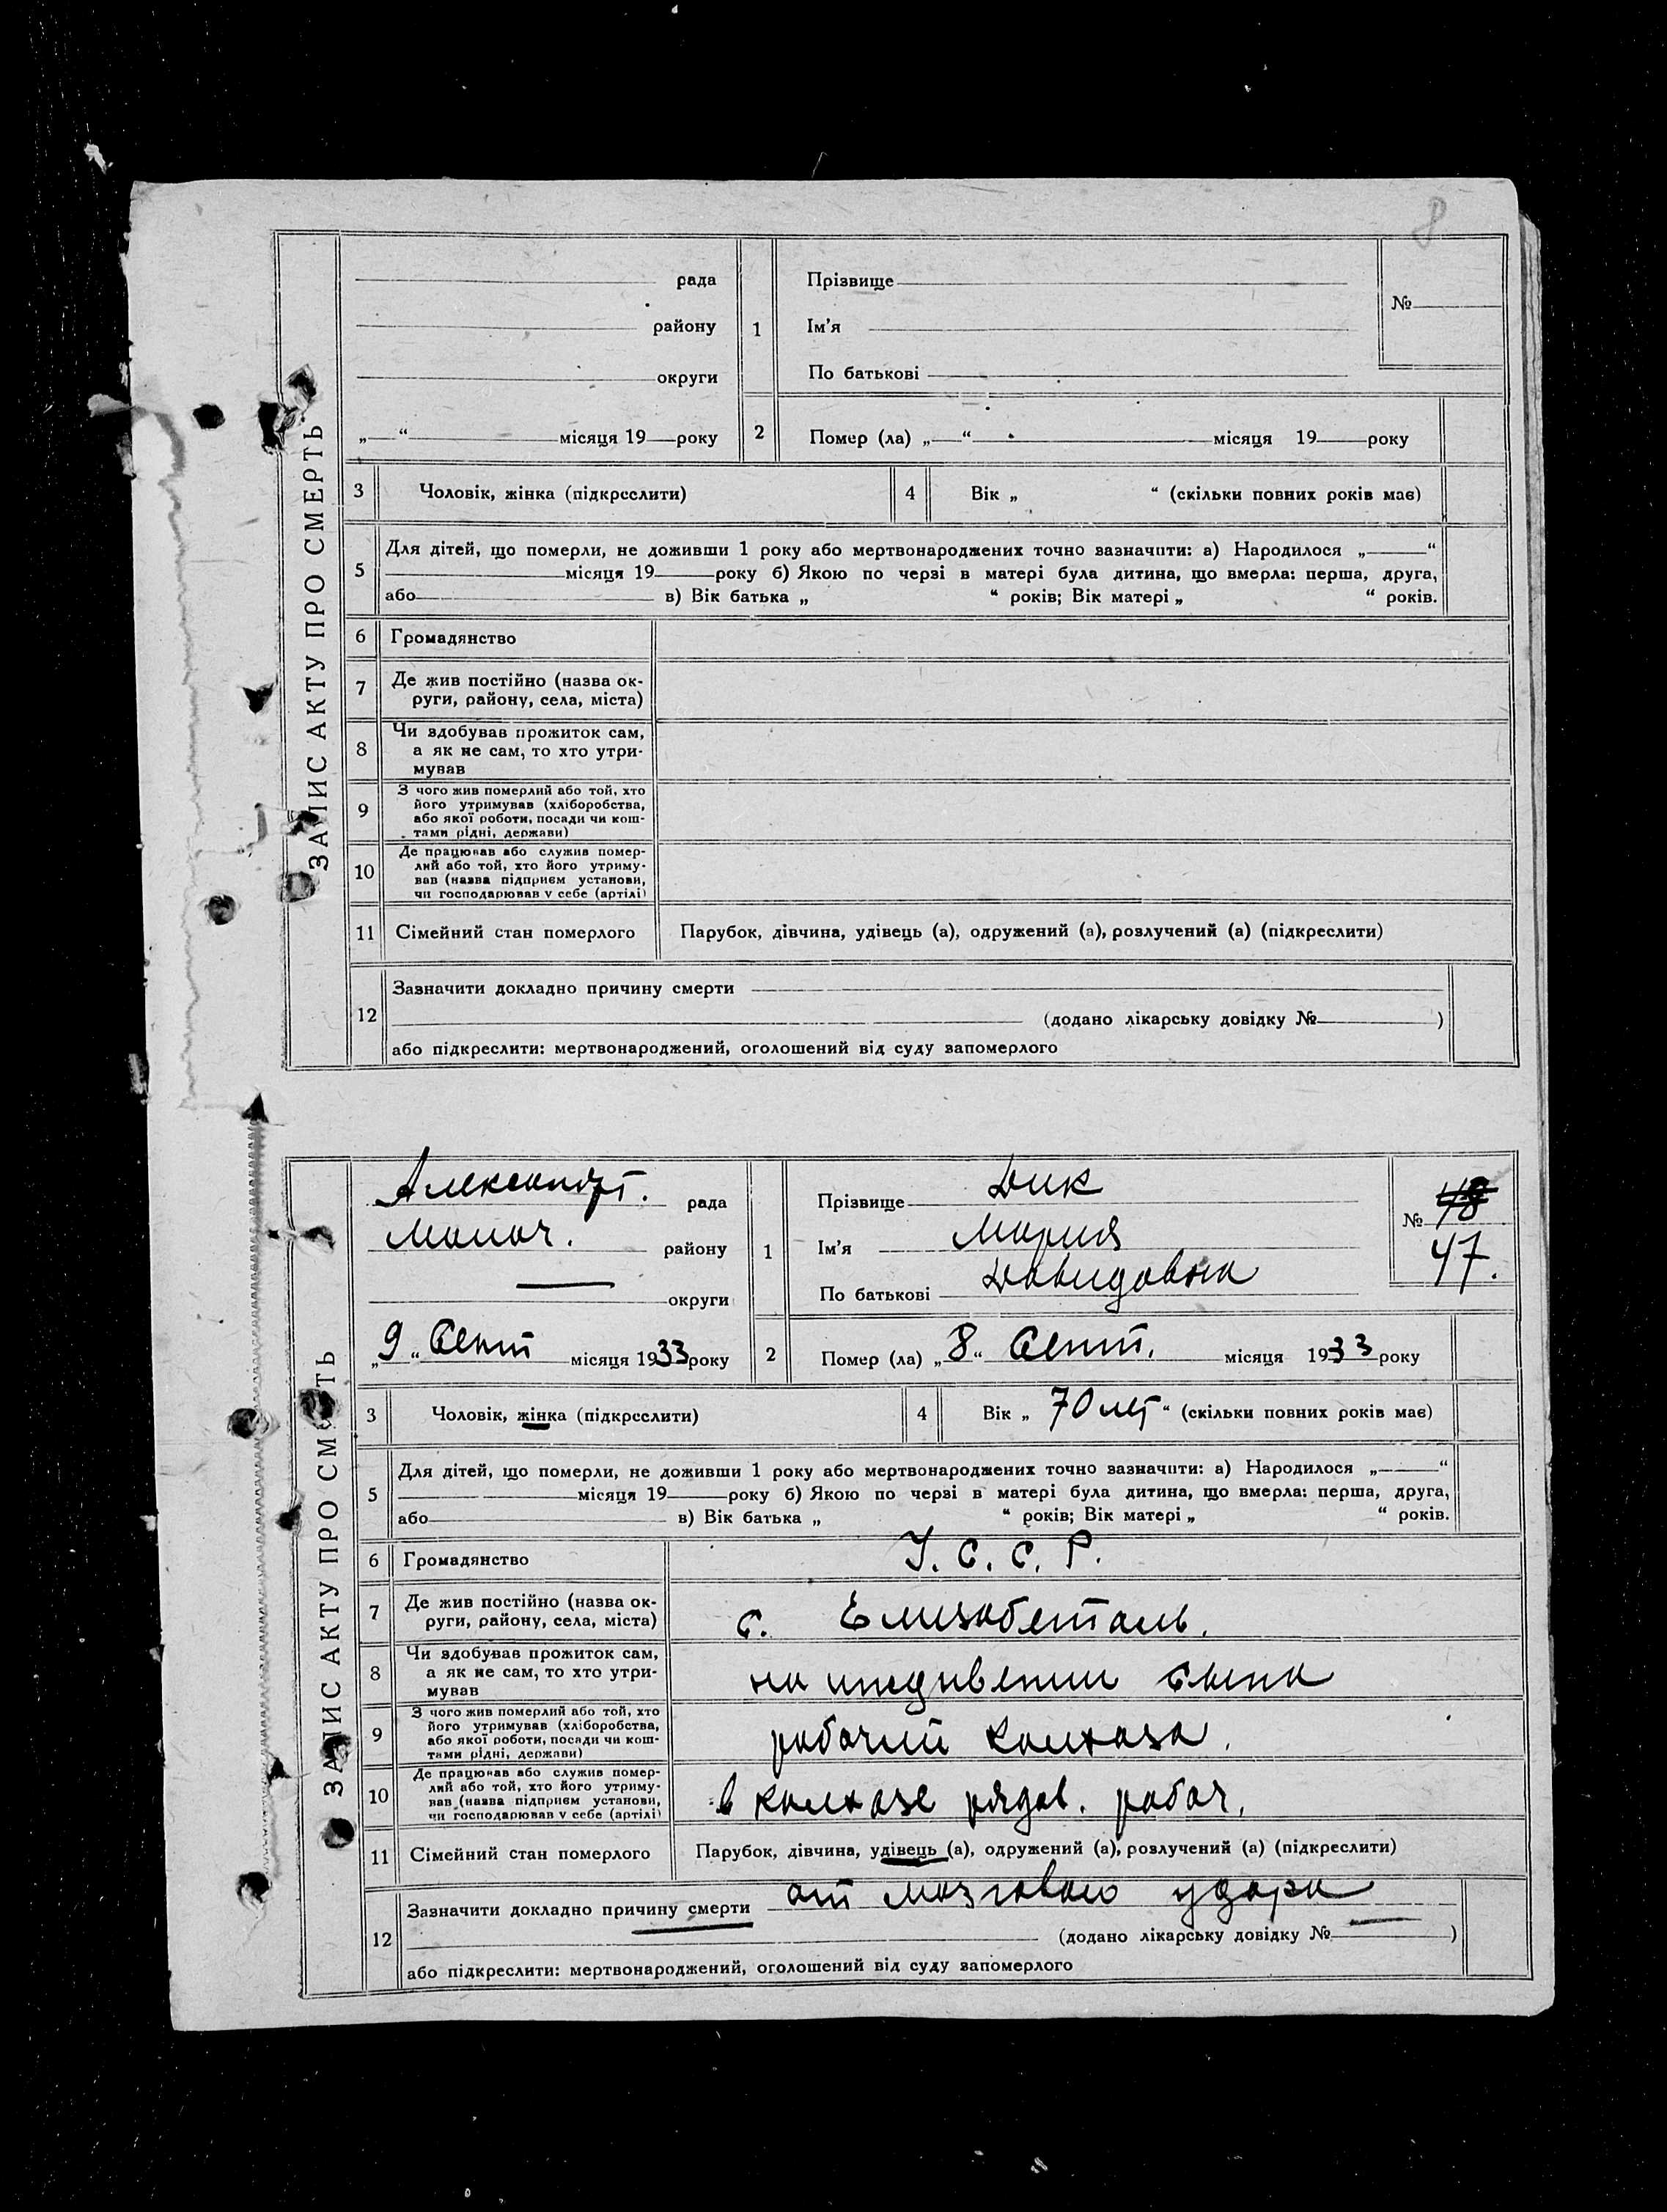 8
ЗАПИС АКТУ ПРО СМЕРТЬ
рада
району
округи
„ “ місяця 19 року
1
Прізвище
Ім’я
По батькові
№
2
Помер (ла) „ “ місяця 19 року
3 Чоловік, жінка (підкреслити)
4 Вік „ “ (скільки повних років має)
5 Для дітей, що померли, не доживши 1 року або мертвонароджених точно зазначити: а) Народилося „ “
місяця 19 року б) Якою по черзі в матері була дитина, що вмерла: перша, друга,
або в) Вік батька „ “ років; Вік матері „ “ років.
6 Громадянство
7 Де жив постійно (назва ок-
руги, району, села, міста)
8 Чи здобував прожиток сам,
а як не сам, то хто утри-
мував
9 З чого жив померлий або той, хто
його утримував (хліборобства,
або якої роботи, посади чи кош-
тами рідні, держави)
10 Де працював або служив помер-
лий або той, хто його утриму-
вав (назва підприєм установи,
чи господарював у себе (артілі)
11 Сімейний стан померлого Парубок, дівчина, удівець (а), одружений (а), розлучений (а) (підкреслити)
12 Зазначити докладно причину смерти
(додано лікарську довідку № )
або підкреслити: мертвонароджений, оголошений від суду запомерлого
ЗАПИС АКТУ ПРО СМЕРТЬ
Александрт. рада
Молоч. району
— округи
„9“ Сент місяця 1933 року
1
Прізвище Дик
Ім’я Мария
По батькові Давидовна
№ 48
47.
2
Помер (ла) „8“ Сент. місяця 1933 року
3 Чоловік, жінка (підкреслити)
4 Вік „ 70 лет “ (скільки повних років має)
5 Для дітей, що померли, не доживши 1 року або мертвонароджених точно зазначити: а) Народилося „ “
місяця 19 року б) Якою по черзі в матері була дитина, що вмерла: перша, друга,
або в) Вік батька „ “ років; Вік матері „ “ років.
6 Громадянство У. С. С. Р.
7 Де жив постійно (назва ок-
руги, району, села, міста)
с. Елизабеталь.
8 Чи здобував прожиток сам,
а як не сам, то хто утри-
мував
на иждивении сына
9 З чого жив померлий або той, хто
його утримував (хліборобства,
або якої роботи, посади чи кош-
тами рідні, держави)
рабочий колхоза.
10 Де працював або служив помер-
лий або той, хто його утриму-
вав (назва підприєм установи,
чи господарював у себе (артілі)
в колхозе рядов. рабоч.
11 Сімейний стан померлого Парубок, дівчина, удівець (а), одружений (а), розлучений (а) (підкреслити)
12 Зазначити докладно причину смерти от мозгового удара
(додано лікарську довідку № — )
або підкреслити: мертвонароджений, оголошений від суду запомерлого